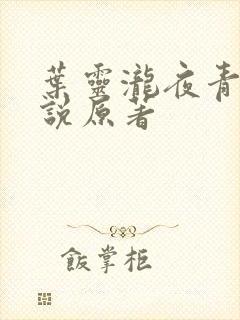 葉靈瀧夜青
說原著
飯掌柜